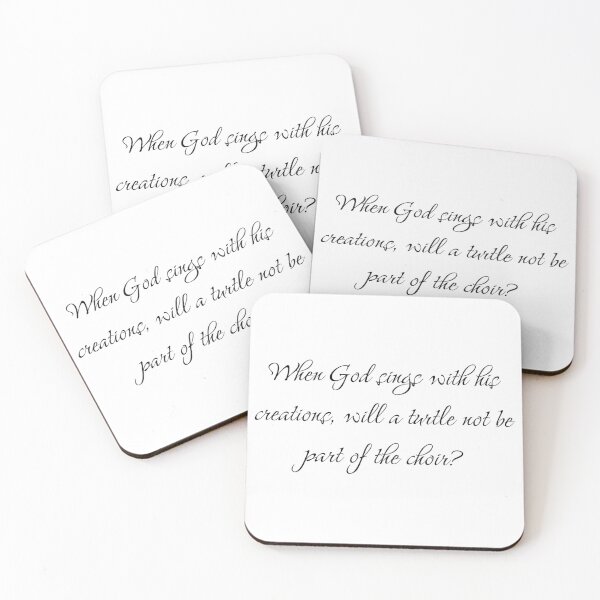 When God sings with his
creations, will a turtle
When God sings with his
creations, will a turtle not be
part of the choir?
When God sings with his
creations, will a turtle not be
part of the
When God sings with his
creations, will a turtle not be
part of the choir?